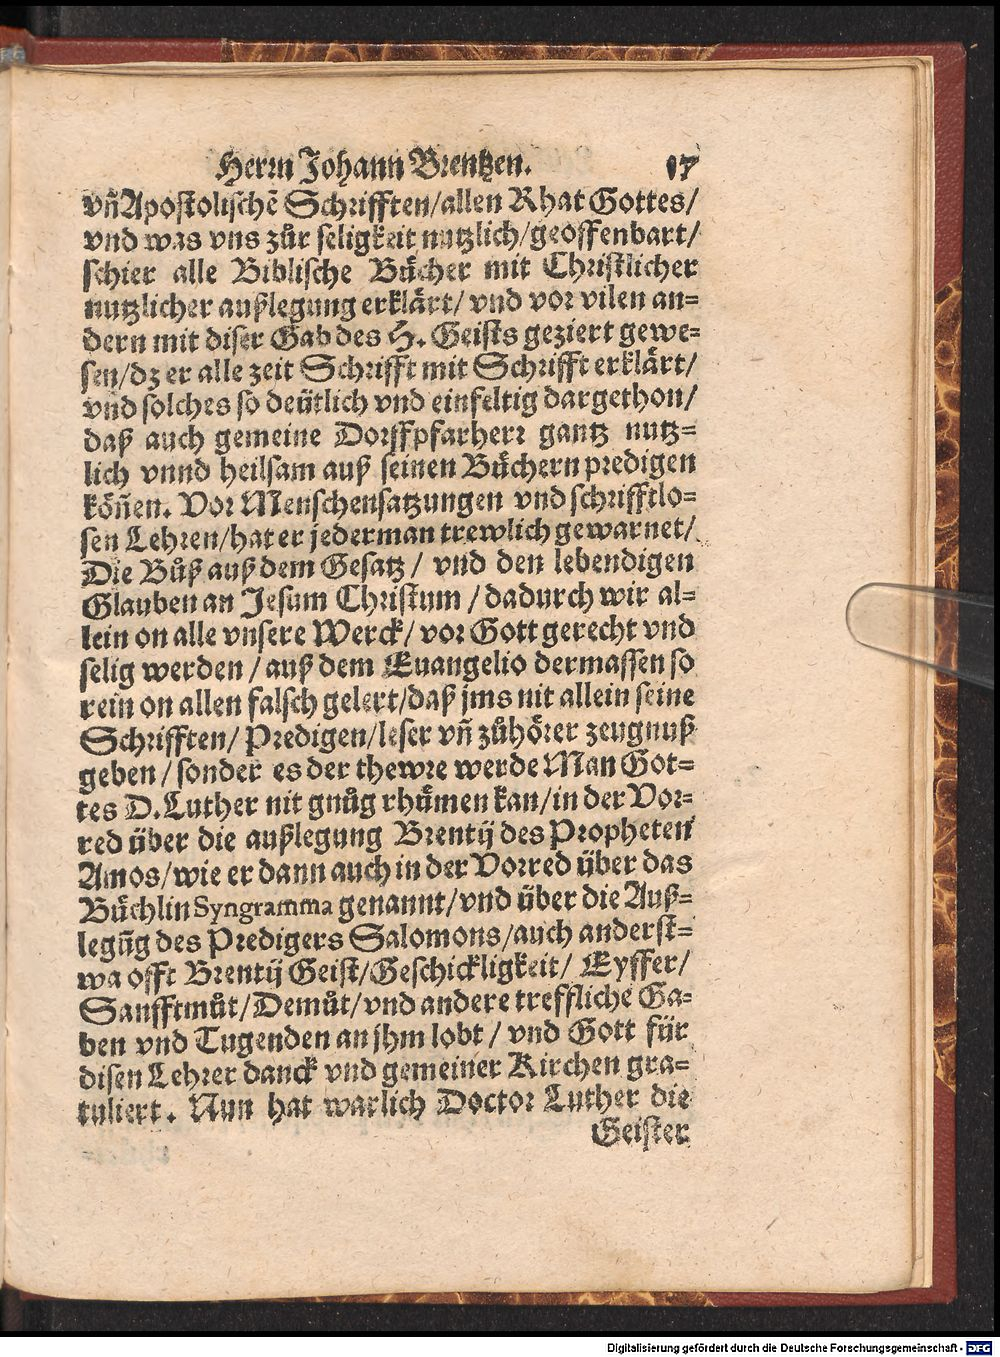 Herrn Johann Brentzen. 17
vn̄ Apostolischē Schrifften/allen Rhat Gottes/
vnd was vns zůr seligkeit nutzlich/geoffenbart/
schier alle Biblische Bůcher mit Christlicher
nutzlicher außlegung erklärt/ vnd vor vilen an=
dern mit diser Gab des H. Geists geziert gewe=
sen/dz er alle zeit Schrifft mit Schrifft erklärt/
vnd solches so deütlich vnd einfeltig dargethon/
daß auch gemeine Dorffpfarherr gantz nutz=
lich vnnd heilsam auß seinen Bůchern predigen
köñen. Vor Menschensatzungen vnd schrifftlo=
sen Lehren/hat er jederman trewlich gewarnet/
Die Bůß auß dem Gesatz / vnd den lebendigen
Glauben an Jesum Christum / dadurch wir al=
lein on alle vnsere Werck/ vor Gott gerecht vnd
selig werden / auß dem Euangelio dermassen so
rein on allen falsch gelert/daß jms nit allein seine
Schrifften/ Predigen/leser vn̄ zůhörer zeugnuß
geben / sonder es der thewre werde Man Got=
tes D. Luther nit gnůg rhůmen kan/in der Vor=
red über die außlegung Brentij des Propheten
Amos/wie er dann auch in der Vorred über das
Bůchlin Syngramma genannt/vnd über die Auß=
legūg des Predigers Salomons/auch anderst=
wa offt Brentij Geist/Geschickligkeit/ Eyffer/
Sanfftmůt/Demůt/vnd andere treffliche Ga=
ben vnd Tugenden an jhm lobt / vnd Gott für
disen Lehrer danck vnd gemeiner Kirchen gra=
tuliert. Nun hat warlich Doctor Luther die
Geister
Digitalisierung gefördert durch die Deutsche Forschungsgemeinschaft - DFG